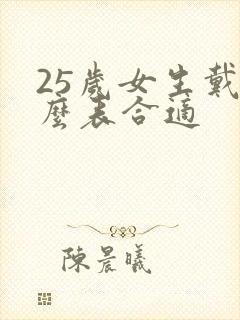 25歲女生戴
麼表合適
陳晨曦